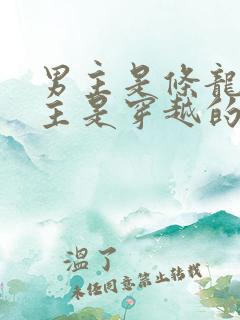 男主是條龍
主是穿越的
溫了
未经同意禁止转载